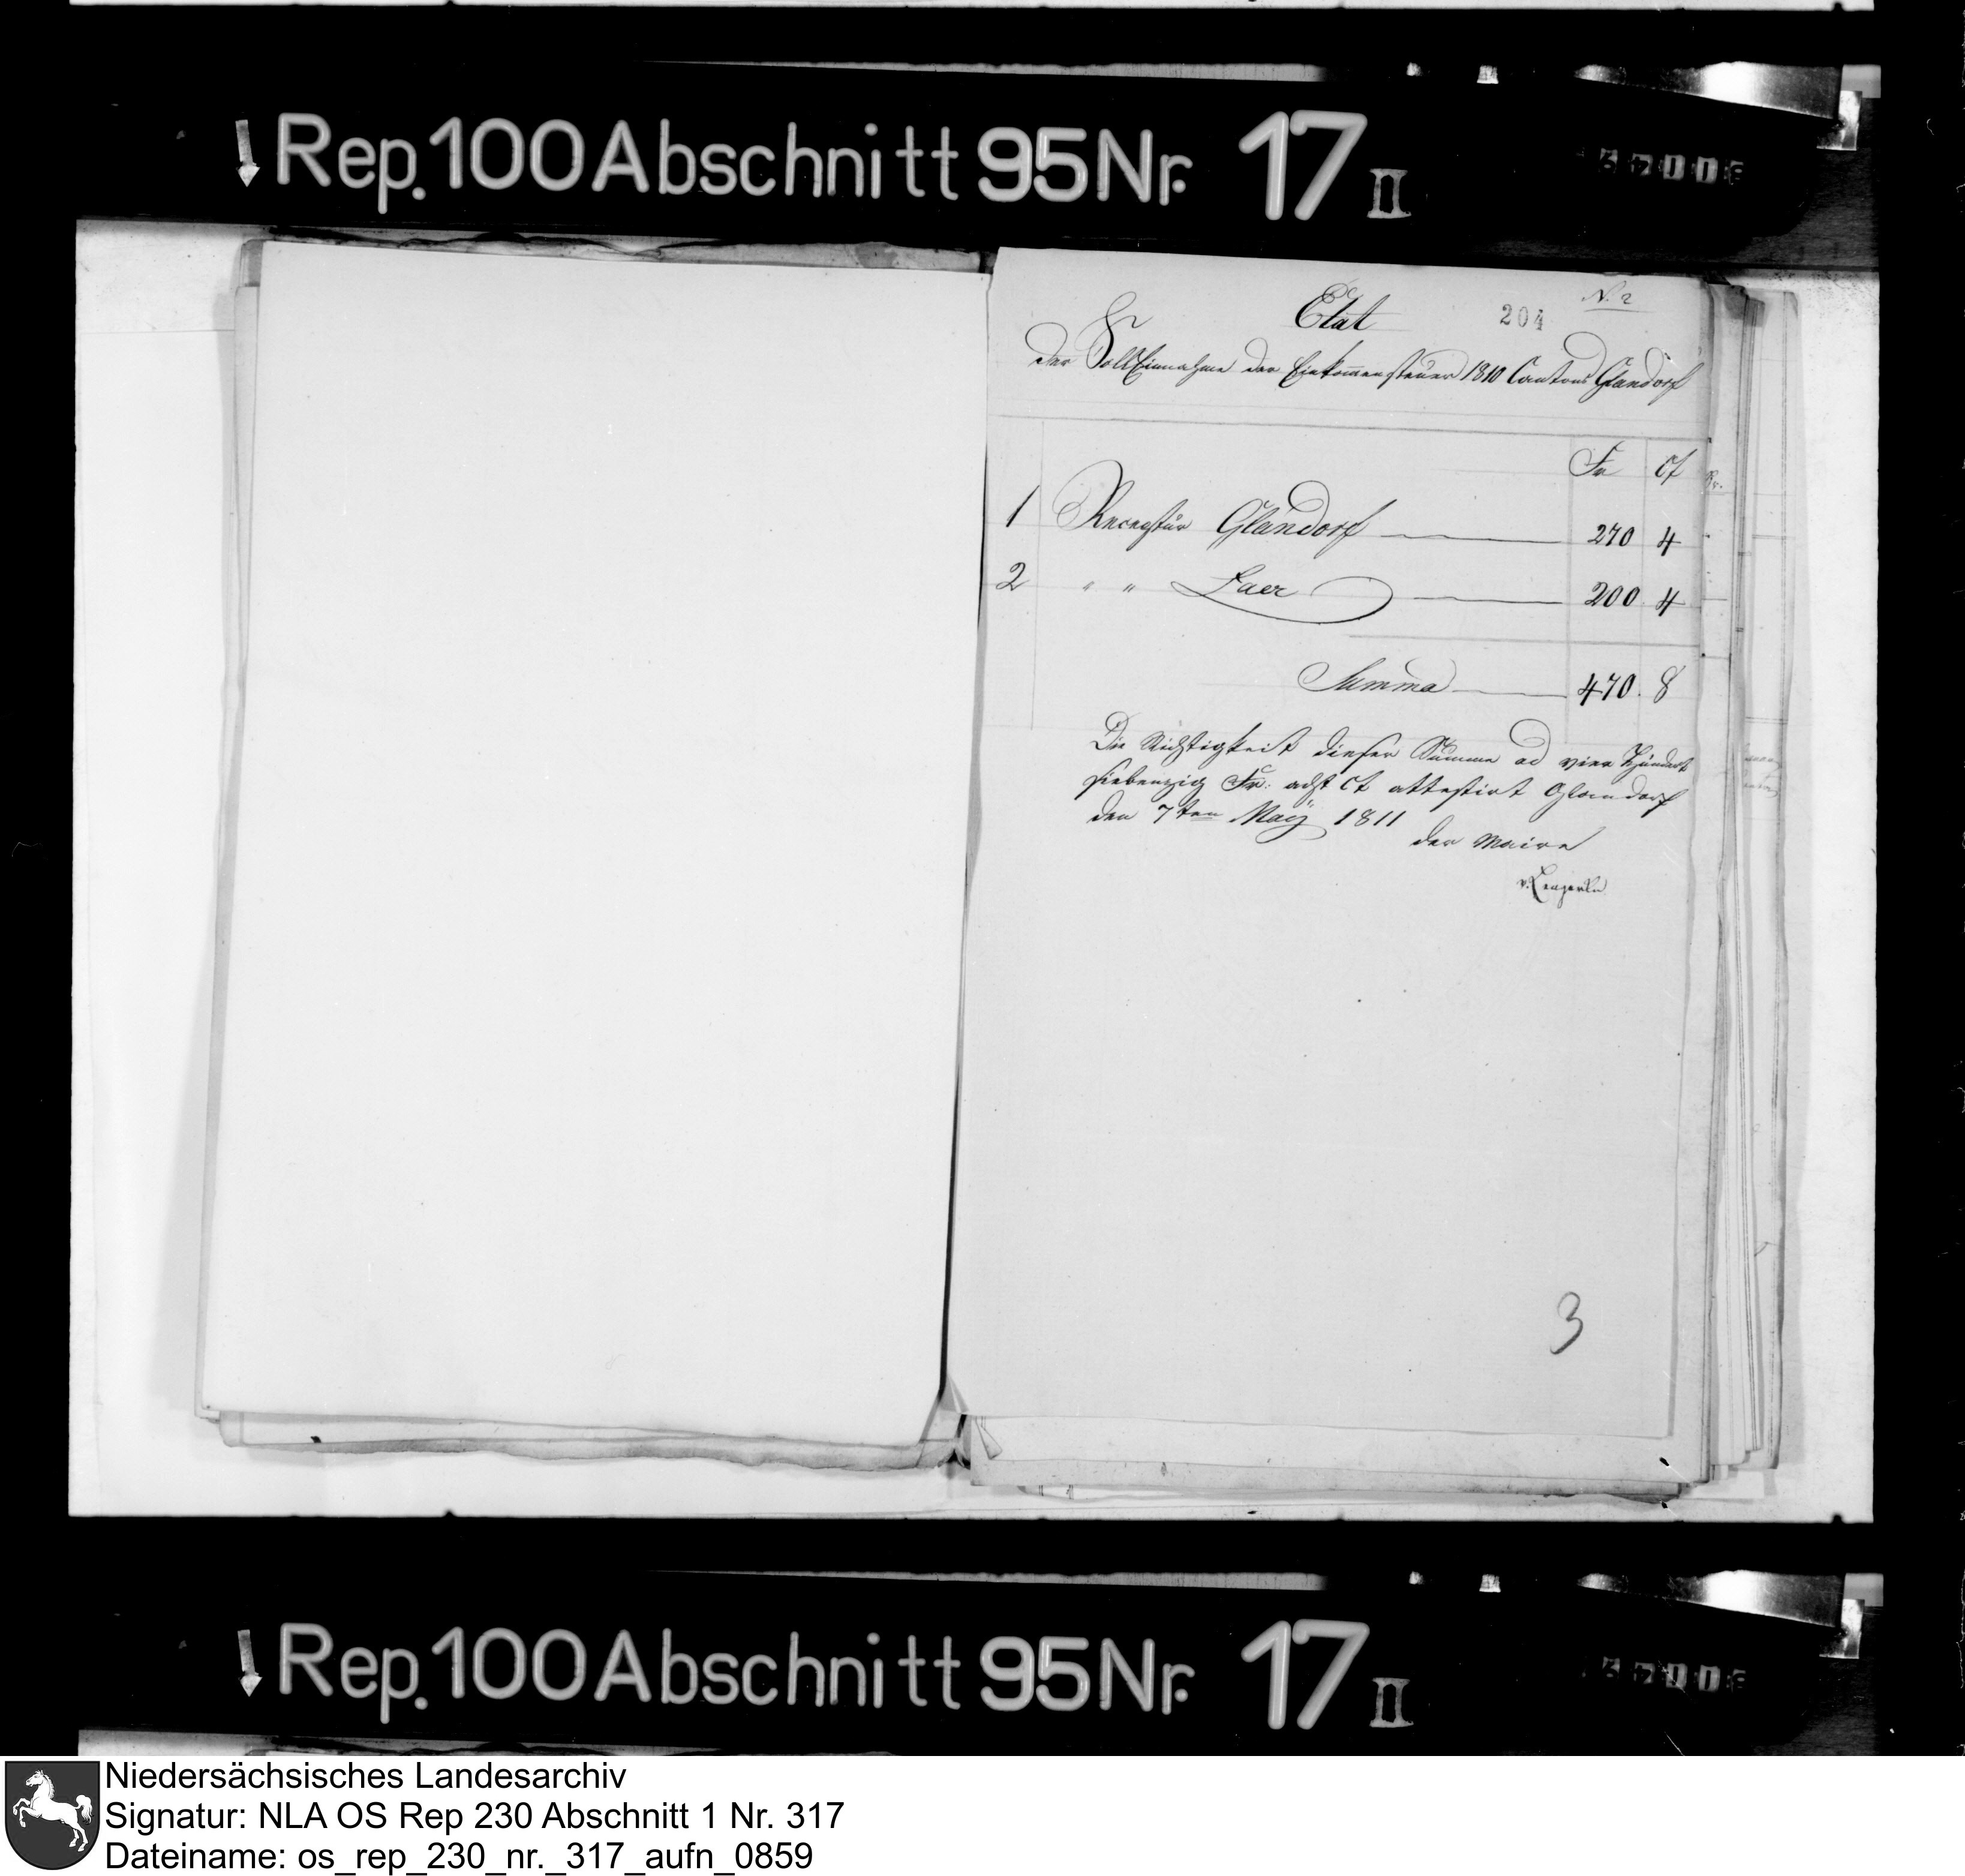 Rep. 100 Abschnitt 95 Nr. 17 II
N. 2
Etat 204
der SollEinnahme der Einkommensteuer 1810 Cantons Glandorf
Fr Ct
1 Receptur Glandorf 270 4
2 " " Laer 200. 4
Summa 470. 8
Die Richtigkeit dieser Summe ad vier Hundert
siebenzig Fr: acht Ct attestirt Glandorf
den 7ten May 1811
der Maire
3
Rep. 100 Abschnitt 95 Nr. 17 II
Niedersächsisches Landesarchiv
Signatur: NLA OS Rep 230 Abschnitt 1 Nr. 317
Dateiname: os_rep_230_nr._317_aufn_0859